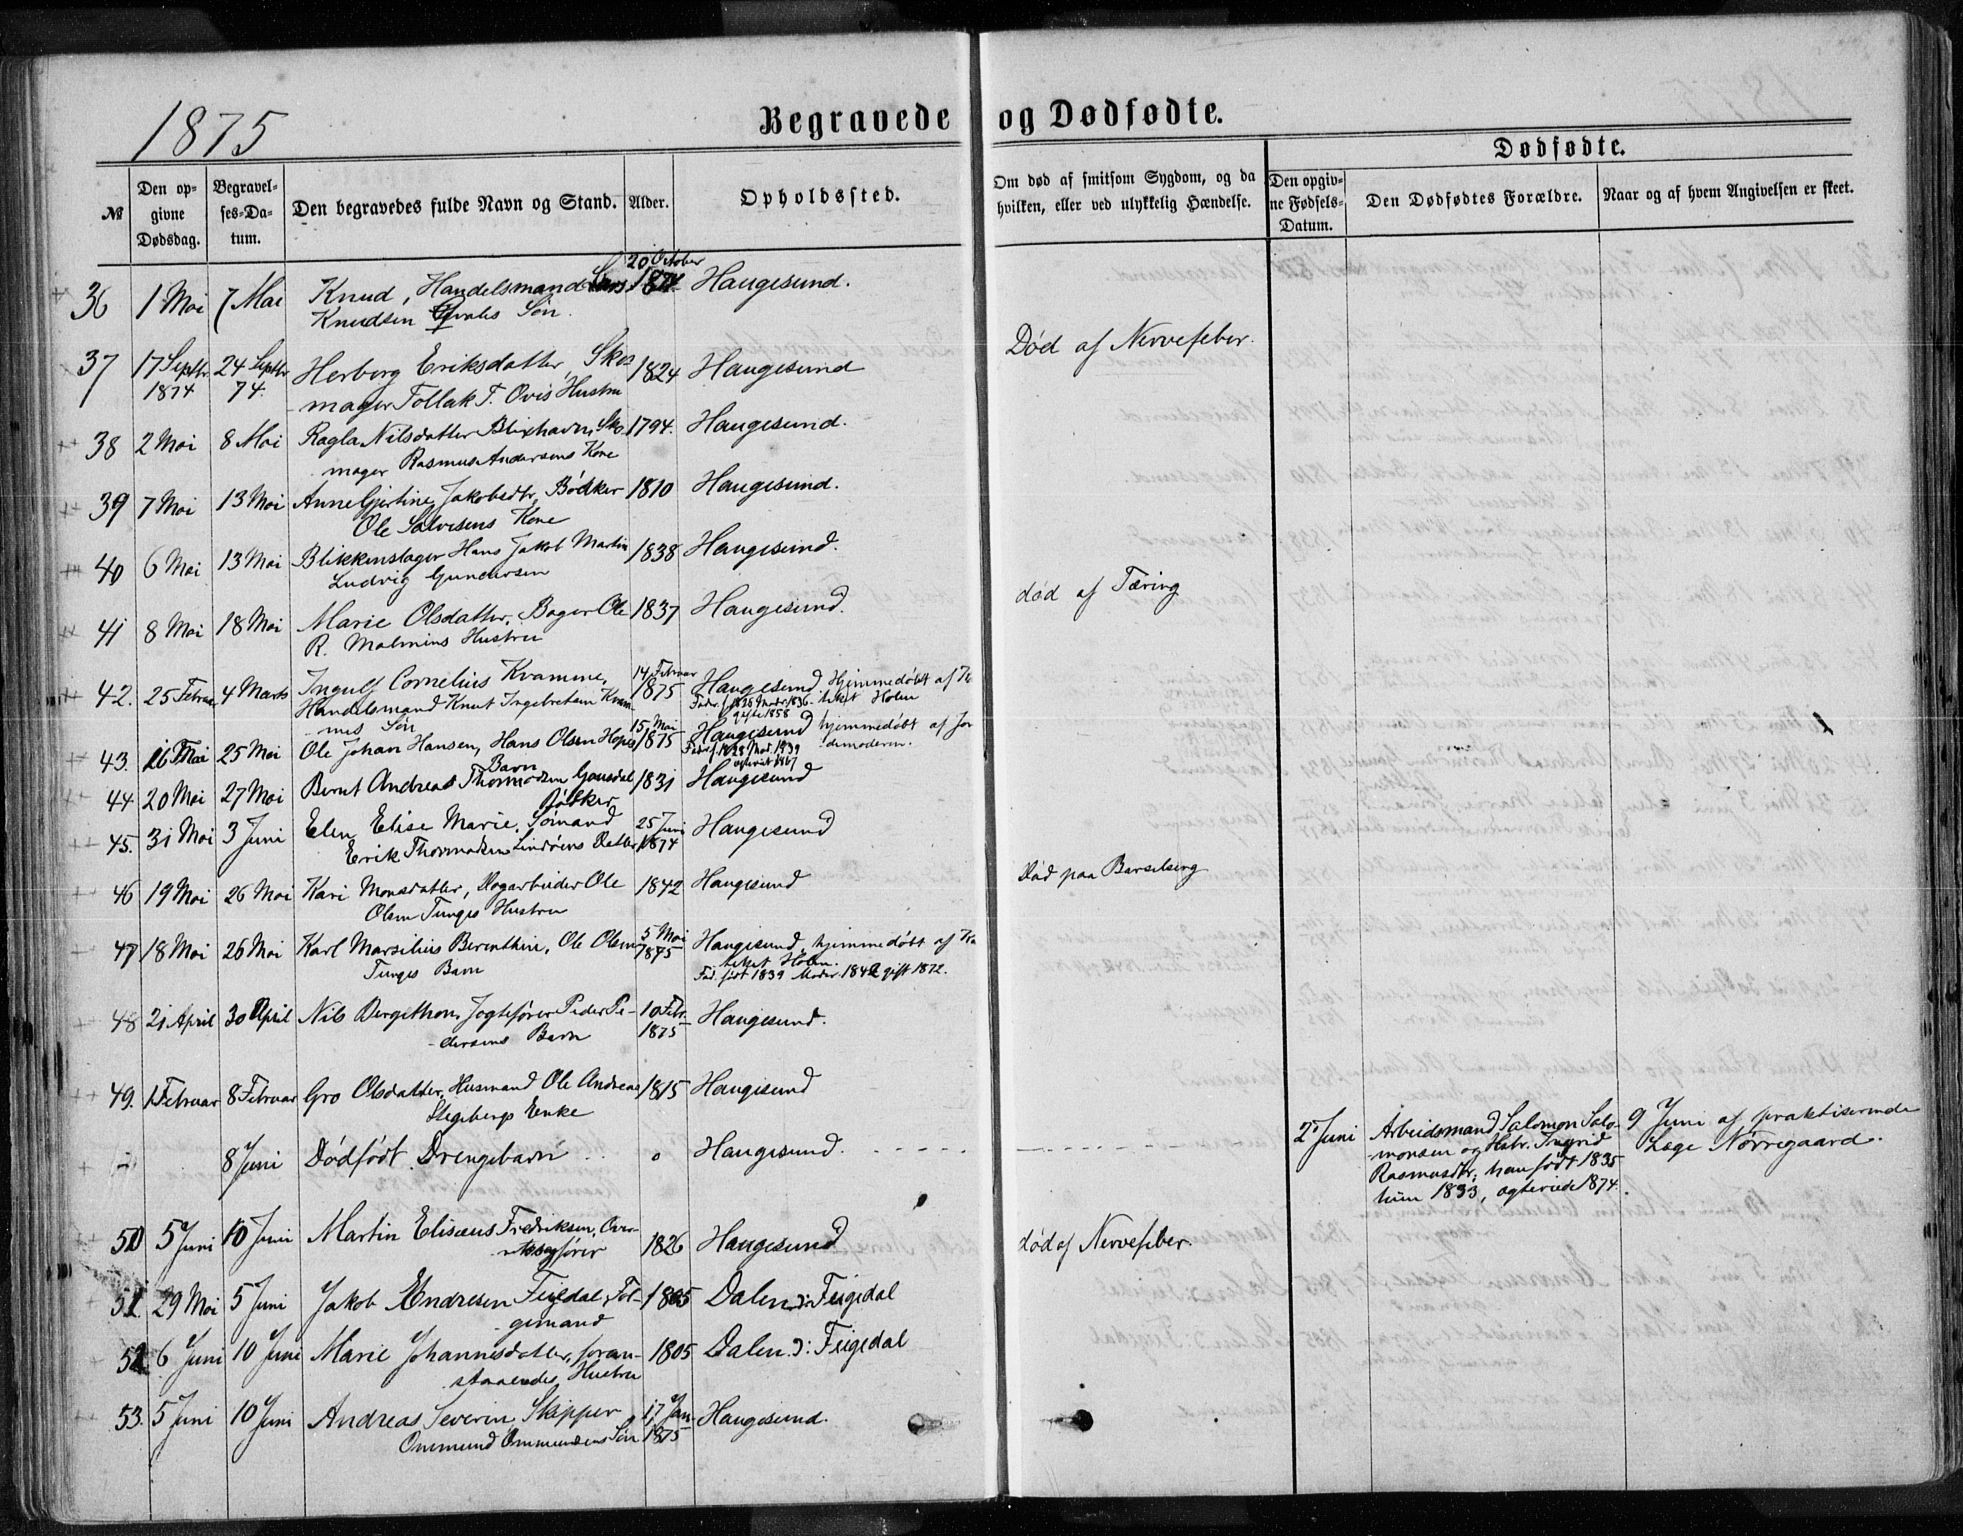 1875
Begravede og Dødfødte.
Dødfødte.
№
Den op-
givne
Dødsdag.
Begravel-
ses-Da-
tum.
Den begravedes fulde Navn og Stand.
Alder.
Opholdssted.
Om død af smitsom Sygdom, og da
hvilken, eller ved ulykkelig Hændelse.
Den opgiv-
ne Fødsels-
Datum.
Den Dødfødtes Forældre.
Naar og af hvem Angivelsen er skeet.
36 1 Mai 7 Mai Knud, Handelsmand Lars 20 October 1874 Haugesund.
Knudsen Søn.
37 17 Septbr 24 Septbr Herborg Eriksdatter, Sko- 1824 Haugesund Død af Nervefeber.
1874 74. mager Tollak T. Ovis Hustru
38 2 Mai 8 Mai Ragla Nilsdatter Blixhavn, Sko- 1794. Haugesund.
mager Rasmus Andersens Kone
39 7 Mai 13 Mai Anne Gjertine Jakobsdtr, Bødker 1810 Haugesund.
Ole Salvesens Kone
40 6 Mai 13 Mai Blikkenslager Hans Jakob Martin 1838 Haugesund.
Ludvig Gundersen
41 8 Mai 18 Mai Marie Olsdatter, Bager Ole 1837 Haugesund. død af Tæring
R. Malmins Hustru
42. 25 Februar 4 Marts Ingulf Cornelius Kvamme, 14 Februar 1875 Haugesund Hjemmedøbt af Ka
Handelsmand Knut Ingebretsen Kvam- Fader f. 1826 Moder 1836 teket Holm
mes Søn gifte 1858
43. 16 Mai 25 Mai Ole Johan Hansen, Hans Olsen Hopes 15 Mai 1875 Haugesund hjemmedøbt af Jor
Barn Fader f. 1828 Mod. 1839 demoderen.
44 20 Mai 27 Mai Bernt Andreas Thormodsen Gausdal 1831 Haugesund
Bødker
45. 31 Mai 3 Juni Elen Elise Marie, Sømand 25 Juni 1874 Haugesund
Erik Thormodsen Lindøens Datter
46 19 Mai 26 Mai Kari Monsdatter, Dagarbeider Ole 1842 Haugesund Død paa Barselseng
Olsen Tunges Hustru
47 18 Mai 26 Mai Karl Marsilius Berenthin, Ole Olsen 5 Mai 1875 Haugesund, hjemmedøbt af Ka
Tunges Barn teket Holm.
Fad. født 1839 Moder 1842 gift 1872.
48 21 April 30 April Nils Bergithon, Jagtefører Peder Pe- 10 Febr. 1875 Haugesund.
dersens Barn
49. 1 Februar 8 Februar Gro Olsdatter, Husmand Ole Andreas 1815 Haugesund
Stegebergs Enke
8 Juni Dødfødt Drengebarn Haugesund. 2 Juni Arbeidsmand Salomon Salo- 9 Juni af praktiserende
monsen og Hstr. Ingrid Læge Nørregaard.
Rasmusdtr, han født 1835
hun 1833, ægteviede 1874.
50 5 Juni 10 Juni Martin Eliseus Fredriksen, Over- 1826 Haugesund død af Nervefeber.
51. 29 Mai 5 Juni Jakob Endresen Feigdal, Fol- 1805 Dalen ɔ: Feigedal
gemand
52. 6 Juni 10 Juni Marie Johannesdatter, foran- 1805 Dalen ɔ: Feigedal
staaendes Hustru
53. 5 Juni 10 Juni Andreas Severin Skipper 17 Jan. 1875 Haugesund.
Ommund Ommundsens Søn